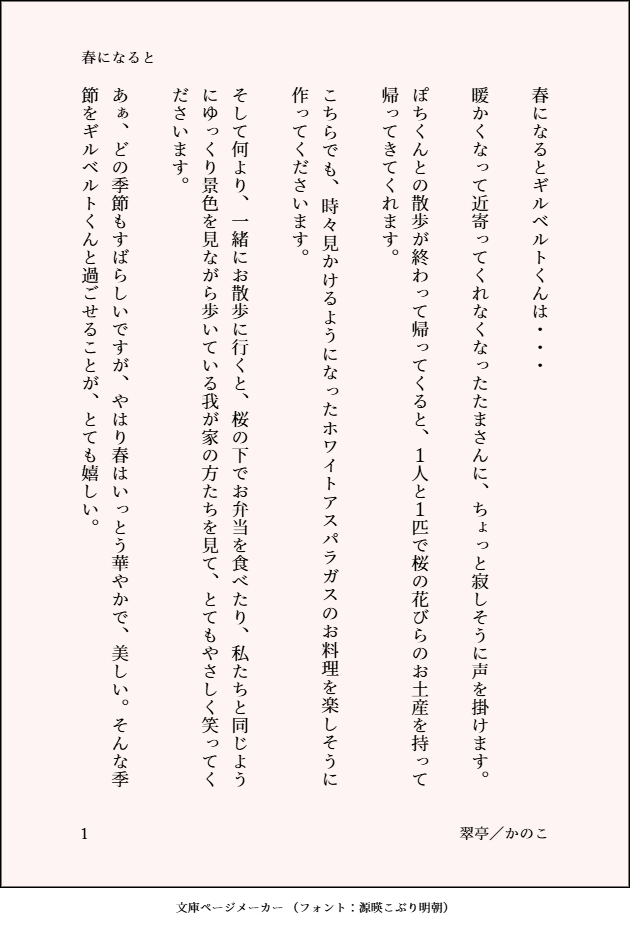 春になると
春になるとギルベルトくんは・・・
暖かくなって近寄ってくれなくなったたまさんに、ちょっと寂しそうに声を掛けます。
ぽちくんとの散歩が終わって帰ってくると、１人と１匹で桜の花びらのお土産を持って
帰ってきてくれます。
こちらでも、時々見かけるようになったホワイトアスパラガスのお料理を楽しそうに
作ってくださいます。
そして何より、一緒にお散歩に行くと、桜の下でお弁当を食べたり、私たちと同じよう
にゆっくり景色を見ながら歩いている我が家の方たちを見て、とてもやさしく笑ってく
ださいます。
あぁ、どの季節もすばらしいですが、やはり春はいっとう華やかで、美しい。そんな季
節をギルベルトくんと過ごせることが、とても嬉しい。
1
翠亭／かのこ
文庫ページメーカー（フォント：源暎こぶり明朝）